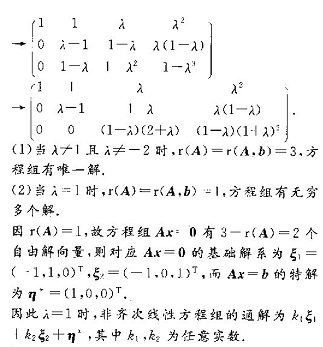 1 1 λ λ²
→ 0 λ-1 1-λ λ(1-λ)
0 1-λ 1 λ² 1-λ³
1 1 λ λ²
→ 0 λ-1 1 λ λ(1-λ) .
0 0 (1-λ)(2+λ) (1-λ)(1+λ)²
(1)当 λ≠1 且 λ≠-2 时,r(A)=r(A,b)=3,方
程组有唯一解.
(2)当 λ=1 时,r(A)=r(A,b)=1,方程组有无穷
多个解.
因 r(A)=1,故方程组 Ax=0 有 3-r(A)=2 个
自由解向量,则对应 Ax=0 的基础解系为 ξ₁=
(-1,1,0)ᵀ,ξ₂=(-1,0,1)ᵀ,而 Ax=b 的特解
为 η*=(1,0,0)ᵀ.
因此 λ=1 时,非齐次线性方程组的通解为 k₁ξ₁
+k₂ξ₂+η*,其中 k₁,k₂ 为任意实数.